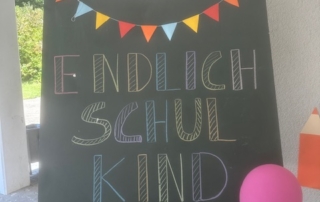 ENDLICH
SCHUL
KIND